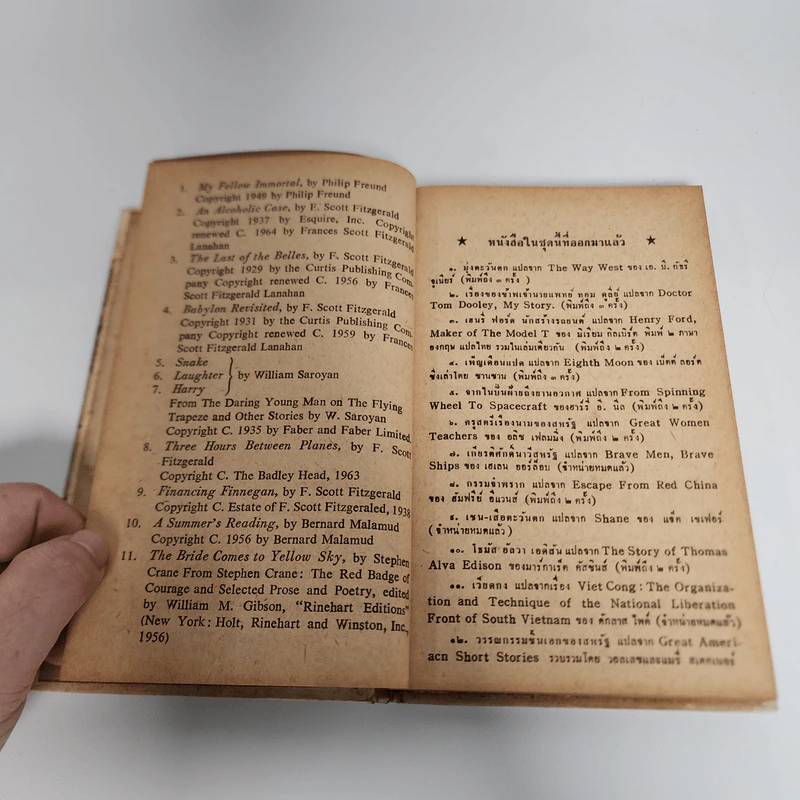 1. My Fellow Immortal, by Philip Freund
Copyright 1949 by Philip Freund
2. An Alcoholic Case, by F. Scott Fitzgerald
Copyright 1937 by Esquire, Inc. Copyright
renewed C. 1964 by Frances Scott Fitzgerald
Lanahan
3. The Last of the Belles, by F. Scott Fitzgerald
Copyright 1929 by the Curtis Publishing Com
pany Copyright renewed C. 1956 by Frances
Scott Fitzgerald Lanahan
4. Babylon Revisited, by F. Scott Fitzgerald
Copyright 1931 by the Curtis Publishing Com
pany Copyright renewed C. 1959 by Frances
Scott Fitzgerald Lanahan
5. Snake
6. Laughter } by William Saroyan
7. Harry
From The Daring Young Man on The Flying
Trapeze and Other Stories by W. Saroyan
Copyright C. 1935 by Faber and Faber Limited,
8. Three Hours Between Planes, by F. Scott
Fitzgerald
Copyright C. The Badley Head, 1963
9. Financing Finnegan, by F. Scott Fitzgerald
Copyright C. Estate of F. Scott Fitzgeraled, 1938
10. A Summer's Reading, by Bernard Malamud
Copyright C. 1956 by Bernard Malamud
11. The Bride Comes to Yellow Sky, by Stephen
Crane From Stephen Crane: The Red Badge of
Courage and Selected Prose and Poetry, edited
by William M. Gibson, “Rinehart Editions”
(New York: Holt, Rinehart and Winston, Inc.,
1956)
★ หนังสือในชุดนี้ที่ออกมาแล้ว ★
๑. มุ่งตะวันตก แปลจาก The Way West ของ เอ. บี. กัธรี
จูเนียร์ (พิมพ์ถึง ๓ ครั้ง)
๒. เรื่องของข้าพเจ้านายแพทย์ ทอม ดูลีย์ แปลจาก Doctor
Tom Dooley, My Story. (พิมพ์ถึง ๓ ครั้ง)
๓. เฮนรี่ ฟอร์ด นักสร้างรถยนต์ แปลจาก Henry Ford,
Maker of The Model T ของ มิเรียม กิลเบิร์ต พิมพ์ ๒ ภาษา
อังกฤษ แปลไทย รวมในเล่มเดียวกัน (พิมพ์ถึง ๒ ครั้ง)
๔. เพ็ญเดือนแปด แปลจาก Eighth Moon ของ เบ็ตตี้ ลอร์ด
ซึ่งเล่าโดย ซานซาน (พิมพ์ถึง ๓ ครั้ง)
๕. จากในปั่นฝ้ายถึงยานอวกาศ แปลจาก From Spinning
Wheel To Spacecraft ของฮาร์รี่ อี. นีล (พิมพ์ถึง ๒ ครั้ง)
๖. ครูสตรีเรืองนามของสหรัฐ แปลจาก Great Women
Teachers ของ อลิซ เฟลมมิ่ง (พิมพ์ถึง ๒ ครั้ง)
๗. เกียรติศักดิ์นาวีสหรัฐ แปลจาก Brave Men, Brave
Ships ของ เฮเลน ออร์ล็อบ (จำหน่ายหมดแล้ว)
๘. กรรมจำพราก แปลจาก Escape From Red China
ของ ฮัมฟรีย์ อีแวนส์ (พิมพ์ถึง ๒ ครั้ง)
๙. เชน-เสือตะวันตก แปลจาก Shane ของ แจ็ค เชเฟอร์
(จำหน่ายหมดแล้ว)
๑๐. โธมัส อัลวา เอดิสัน แปลจาก The Story of Thomas
Alva Edison ของมาร์กาเร็ต คัสซันส์ (พิมพ์ถึง ๒ ครั้ง)
๑๑. เวียดกง แปลจากเรื่อง Viet Cong : The Organiza-
tion and Technique of the National Liberation
Front of South Vietnam ของ ดักลาส ไพค์ (จำหน่ายหมดแล้ว)
๑๒. วรรณกรรมชั้นเอกของสหรัฐ แปลจาก Great Ameri-
acn Short Stories รวบรวมโดย วอลเลซและแมรี่ สเตกเนอร์